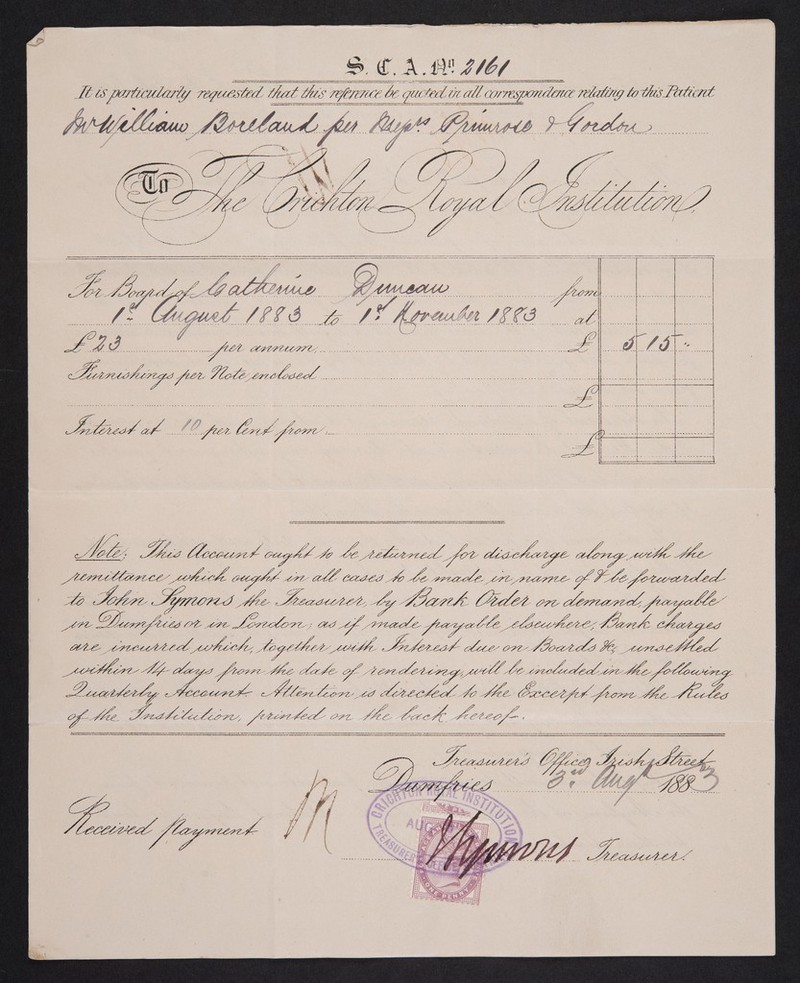 S. C. A. No. 2161
It is particularly requested that this reference be quoted in all correspondence relating to this Patient
Mr William Boreland per Messrs Primrose & Gordon
To The Crichton Royal Institution,
For Board of Catherine Duncan from
1st August 1883 to 1st November 1883 at
£ 23 per annum, £ 5 15 "
Furnishings per Note, enclosed
£
Interest at 10 per Cent from
£
Note; This Account ought to be returned for discharge along with the
remittance which ought in all cases to be made in name of & be forwarded
to John Symons the Treasurer, by Bank Order on demand, payable
in Dumfries or in London; as if made payable elsewhere, Bank charges
are incurred which, together with Interest due on Boards &c, unsettled
within 14 days from the date of rendering, will be included in the following
Quarterly Account. Attention is directed to the Excerpt from the Rules
of the Institution, printed on the back hereof.
Treasurer's Office, Irish Street,
Dumfries 3rd Augt 1883
CRICHTON ROYAL INSTITUTION
AUG
TREASURER'S OFFICE
Received Payment
J Symons Treasurer.
ONE PENNY